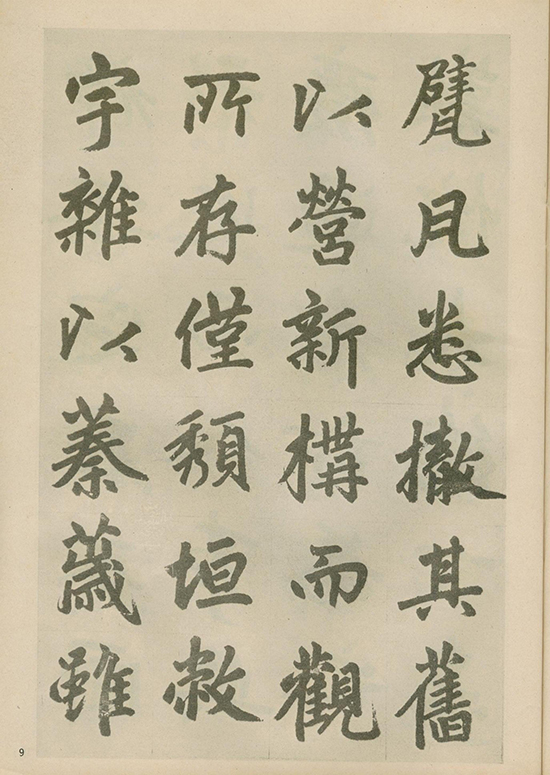 甓凡悉撤其舊
以營新構而觀
所存僅頹垣敝
宇雜以蓁薉雖
9